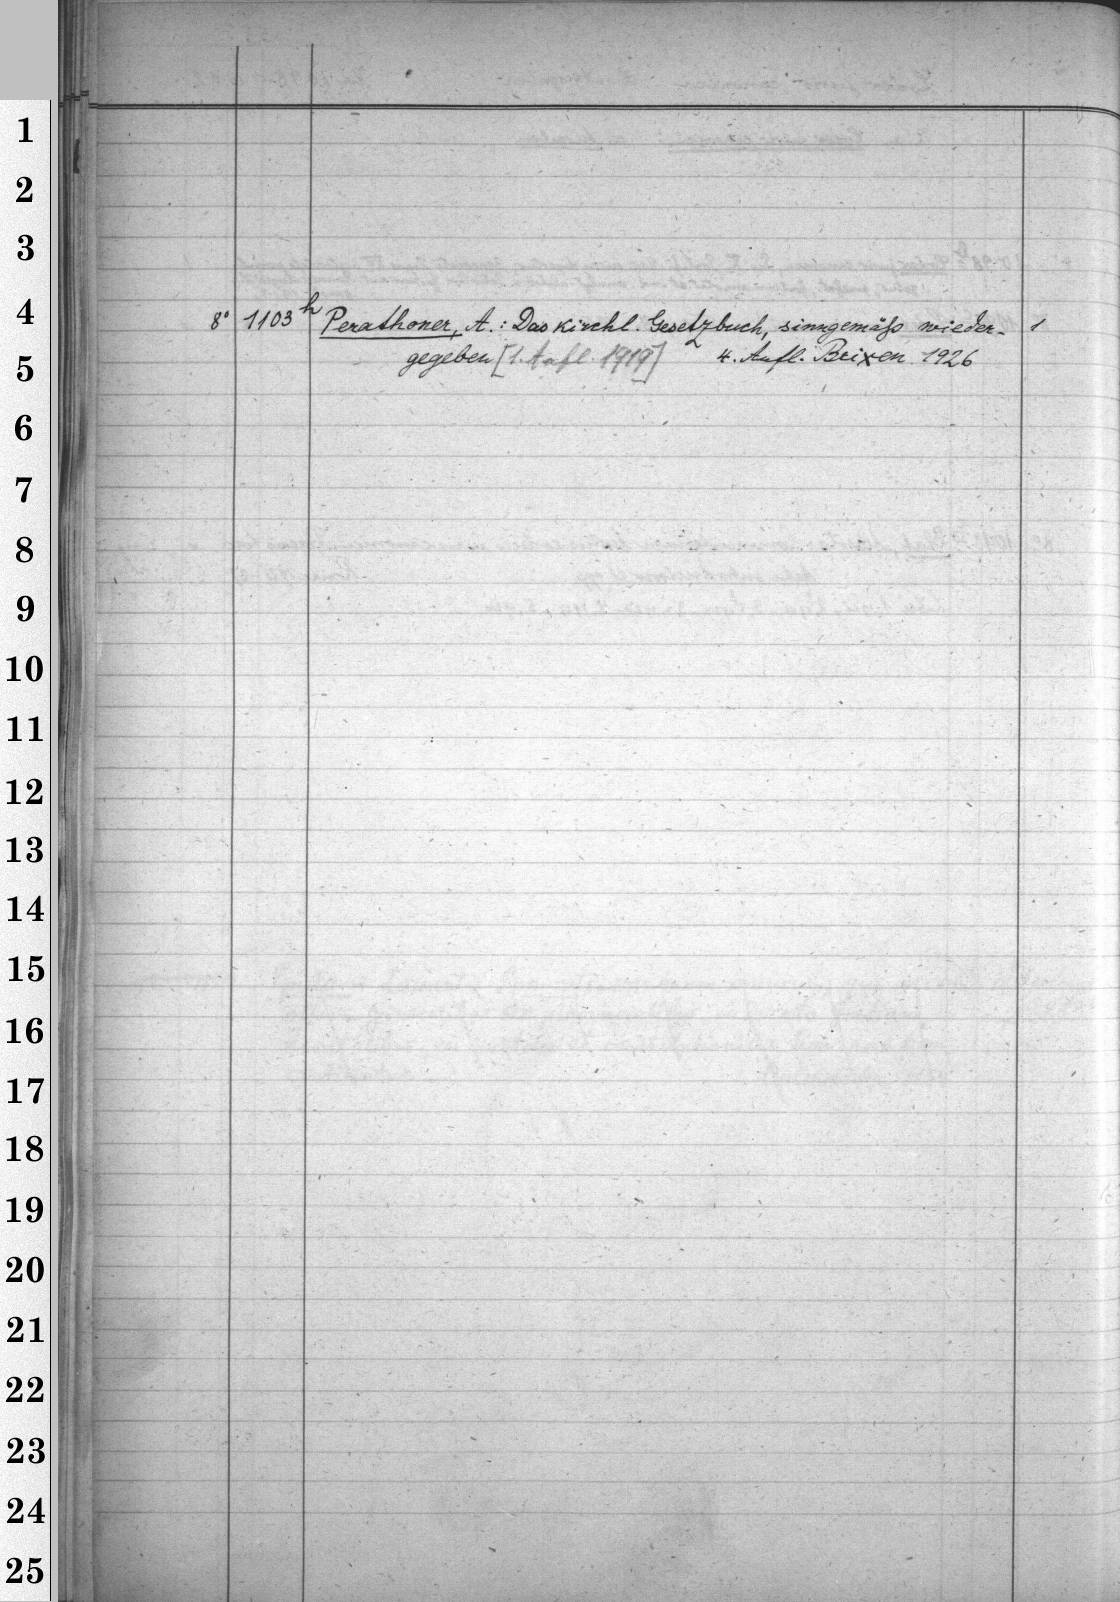 1
2
3
4
8° 1103 h Perathoner, A.: Das kirchl. Gesetzbuch, sinngemäß wieder- 1
gegeben [1. Aufl. 1919] 4. Aufl. Brixen 1926
5
6
7
8
9
10
11
12
13
14
15
16
17
18
19
20
21
22
23
24
25